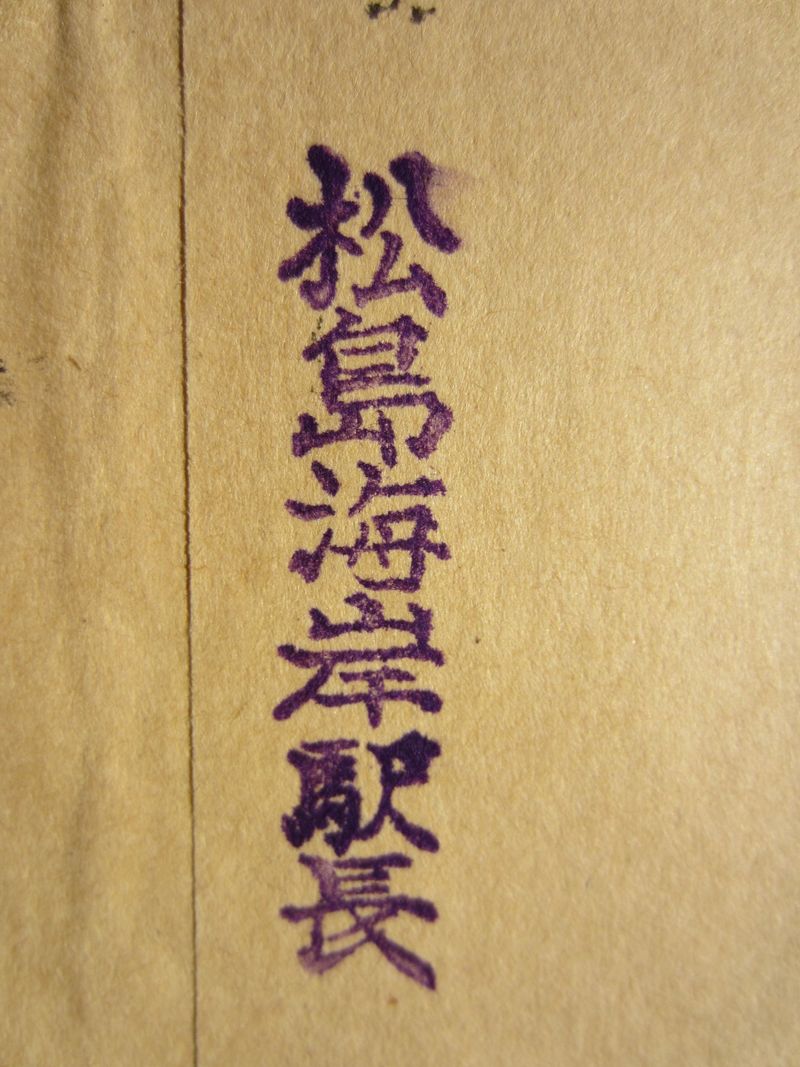 松島海岸駅長